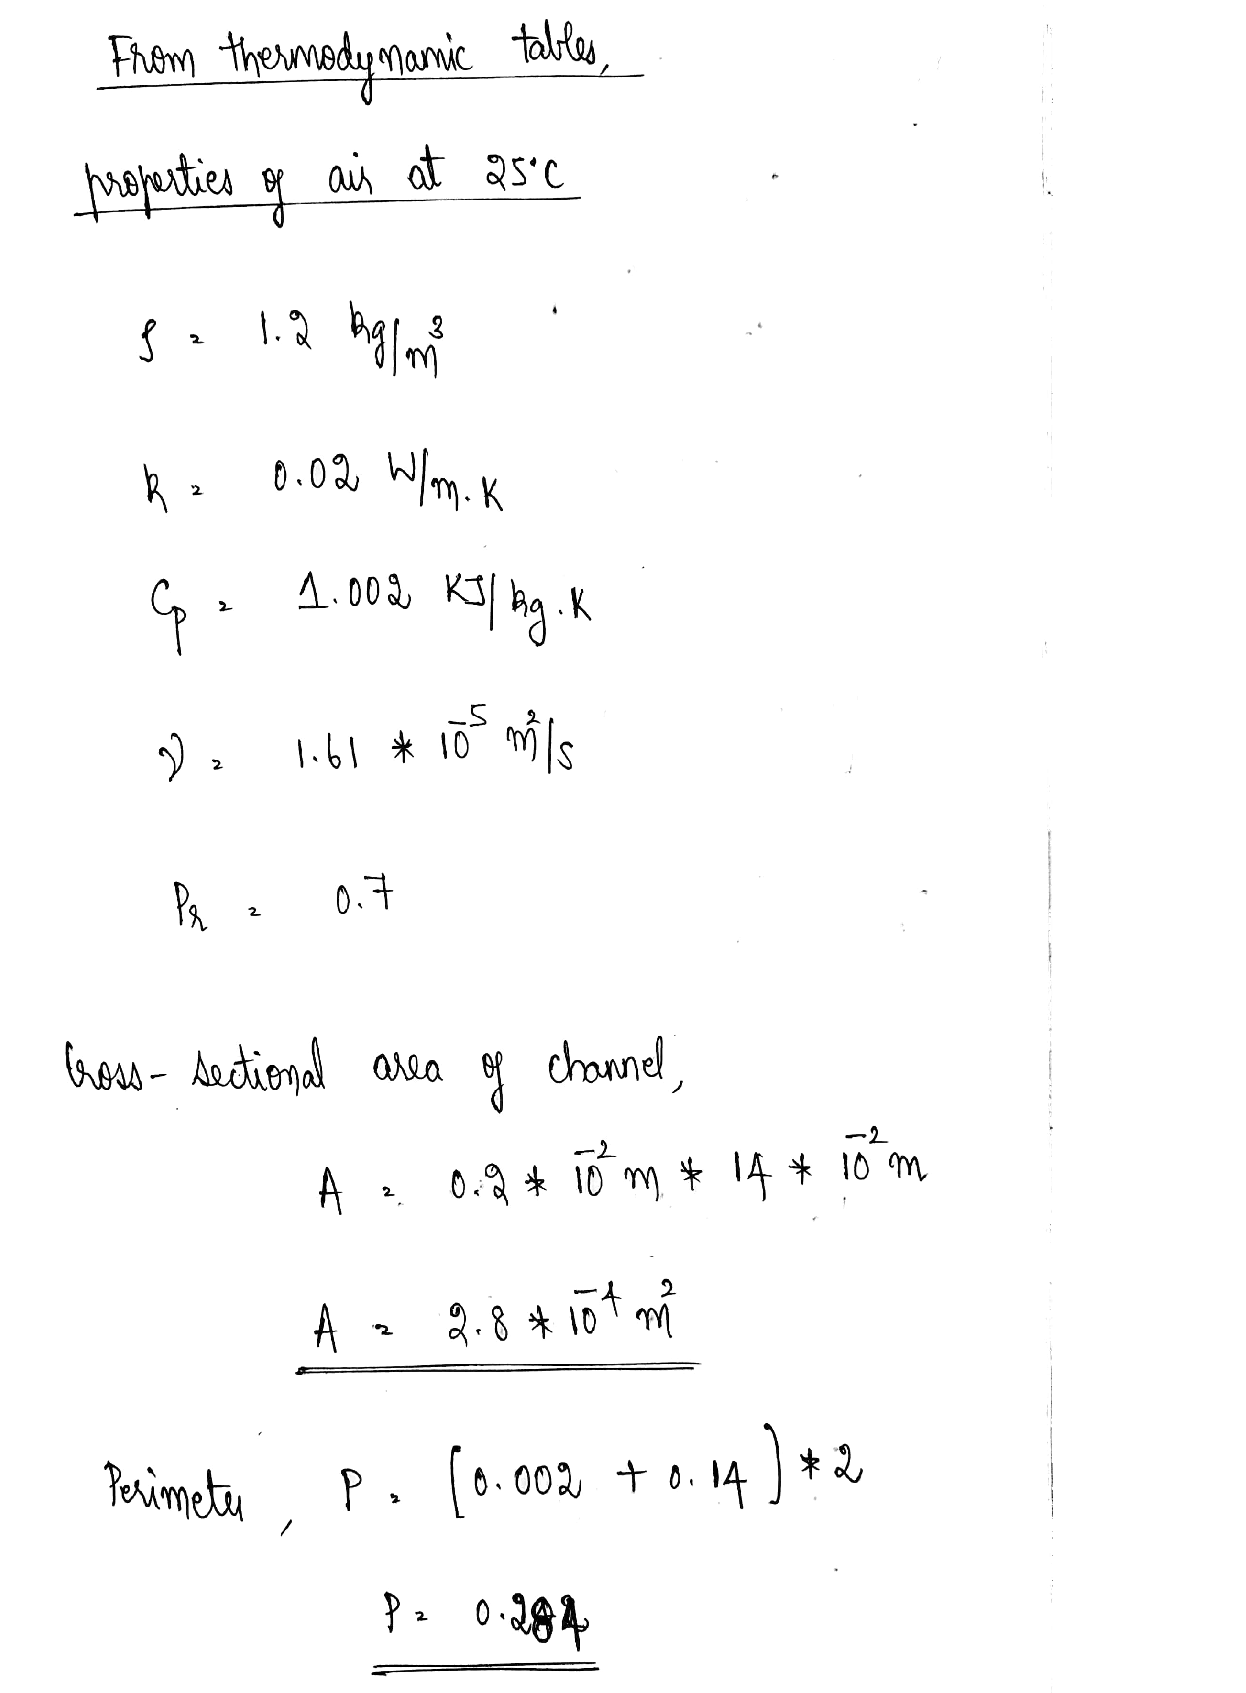 From thermodynamic tables,
properties of air at 25°C
ρ = 1.2 kg/m³
k = 0.02 W/m.K
Cp = 1.002 KJ/kg.K
ν = 1.61 * 10⁻⁵ m²/s
Pr = 0.7
Cross-sectional area of channel,
A = 0.2 * 10⁻² m * 14 * 10⁻² m
A = 2.8 * 10⁻⁴ m²
Perimeter, P = [0.002 + 0.14] * 2
P = 0.284